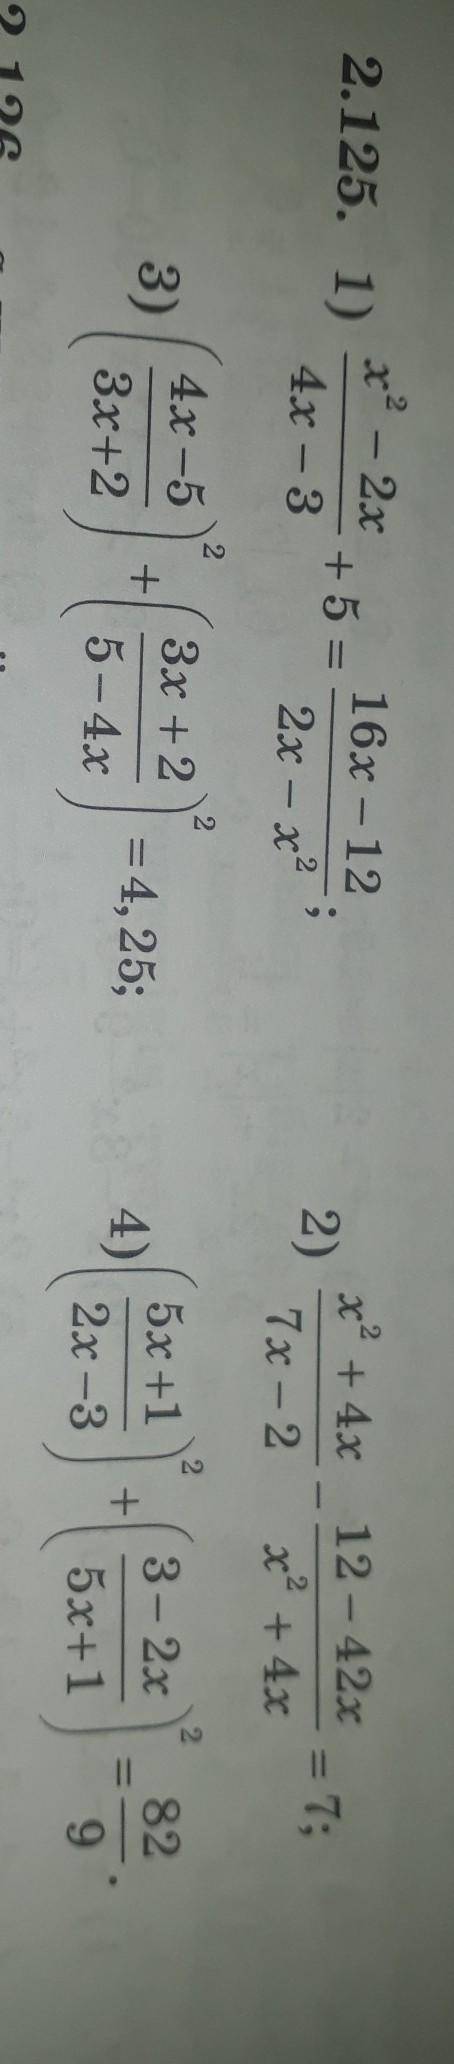 2.125. 1) \frac{x^2 - 2x}{4x - 3} + 5 = \frac{16x - 12}{2x - x^2}; 2) \frac{x^2 + 4x}{7x - 2} - \frac{12 - 42x}{x^2 + 4x} = 7;
3) \left(\frac{4x - 5}{3x + 2}\right)^2 + \left(\frac{3x + 2}{5 - 4x}\right)^2 = 4,25; 4) \left(\frac{5x + 1}{2x - 3}\right)^2 + \left(\frac{3 - 2x}{5x + 1}\right)^2 = \frac{82}{9}.
2.126